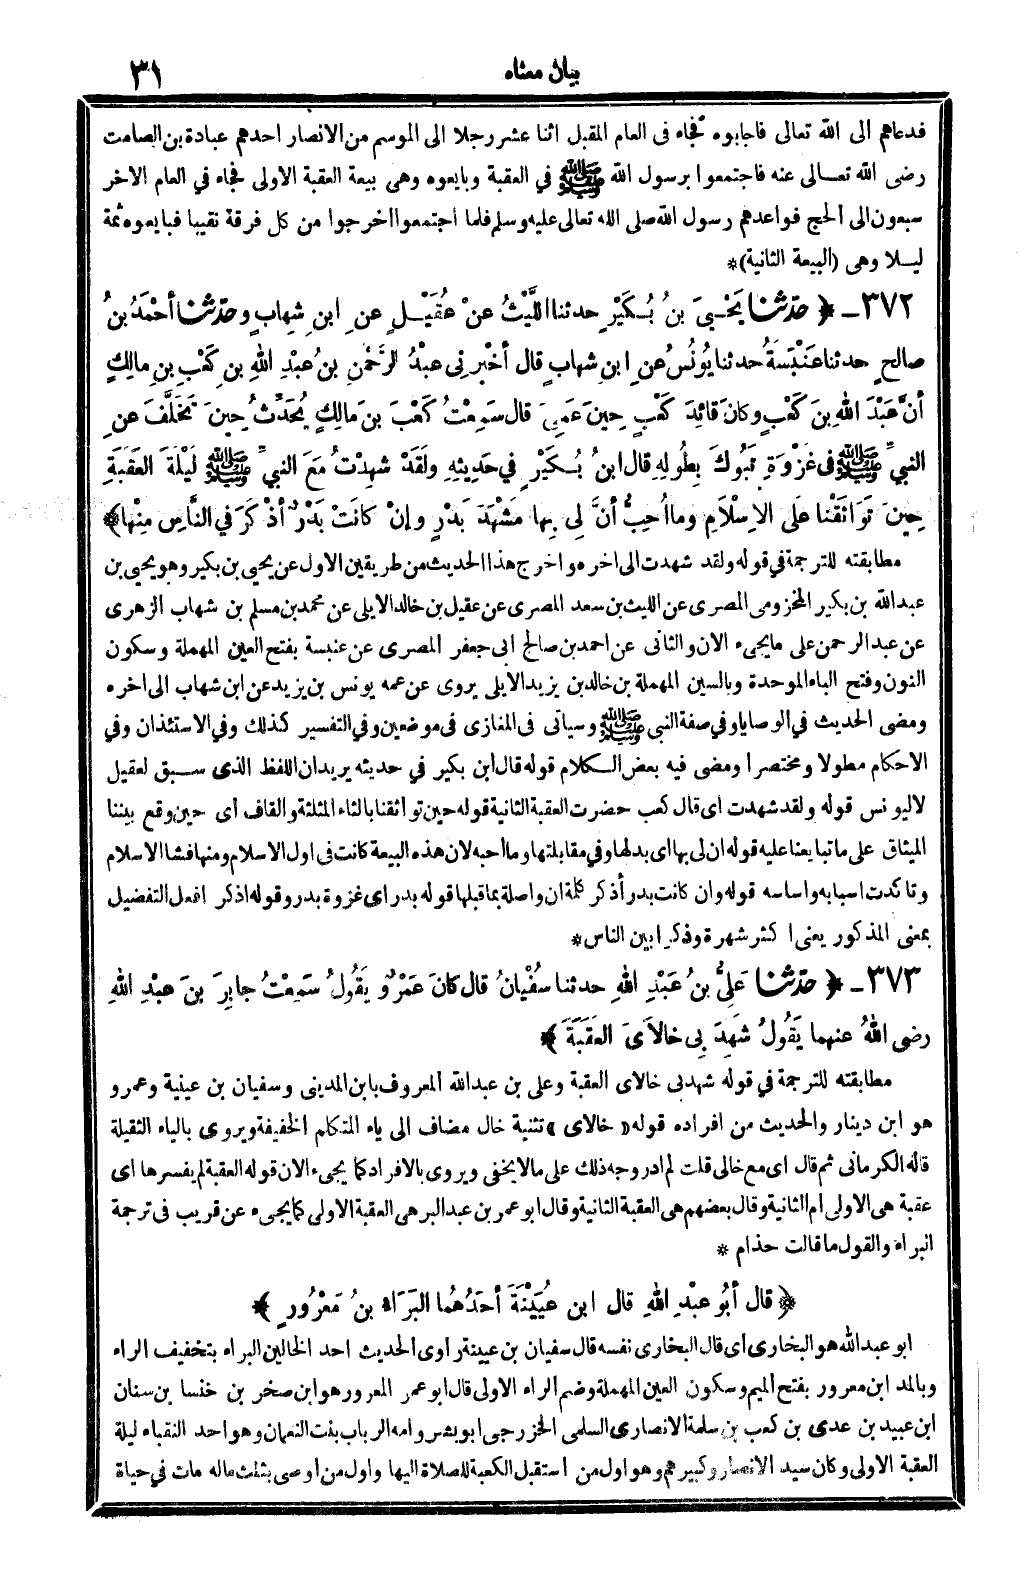 بيان معناه ٣١
فدعاهم الى الله تعالى فاجابوه فجاء فى العام المقبل اثنا عشر رجلا الى الموسم من الانصار احدهم عبادة بن الصامت
رضى الله تعالى عنه فاجتمعوا برسول الله ﷺ في العقبة وبايعوه وهى بيعة العقبة الاولى فجاء في العام الاخر
سبعون الى الحج فواعدهم رسول الله صلى الله تعالى عليه وسلم فلما اجتمعوا اخرجوا من كل فرقة نقيبا فبايعوه ثمة
ليلا وهى (البيعة الثانية)*
٣٧٢ ـ ﴿ حَدَّثنا يَحْيىَ بنُ بُكَيْرٍ حدثنا اللَّيْثُ عنْ عُقَيْلٍ عنِ ابنِ شِهابٍ وحَدَّثنا أحْمَدُ بنُ
صالحٍ حدثنا عَنْبَسَةُ حدثنا يُونُسُ عنِ ابنِ شهابٍ قال أخْبرَنى عبدُ الرَّحْمٰنِ بنُ عبْدِ اللهِ بنِ كَعْبِ بنِ مالِكٍ
أنَّ عَبْدَ اللهِ بنَ كَعْبٍ وكانَ قائِدَ كَعْبٍ حِينَ عَمِىَ قال سَمِعْتُ كَعْبَ بنَ مالِكٍ يُحَدِّثُ حِينَ تَخَلَّفَ عنِ
النبيِّ ﷺ فى غَزْوَةِ تَبُوكَ بِطُولِهِ قال ابنُ بُكَيْرٍ في حَدِيثِهِ ولَقَدْ شَهِدْتُ مَعَ النبيِّ ﷺ لَيْلَةَ العَقَبَةِ
حِينَ تَوَاثَقْنا عَلَى الاِسْلاَمِ وما أُحِبُّ أنَّ لِى بِها مَشْهَدَ بَدْرٍ وإنْ كانَتْ بَدْرٌ أذْكَرَ في النَّاسِ مِنْها ﴾
مطابقته للترجمة في قوله ولقد شهدت الى اخره واخرج هذا الحديث من طريقين الاول عن يحيى بن بكير وهو يحيى بن
عبد الله بن بكير المخزومى المصرى عن الليث بن سعد المصرى عن عقيل بن خالد الايلى عن محمد بن مسلم بن شهاب الزهرى
عن عبد الرحمن على ما يجىء الان والثانى عن احمد بن صالح ابى جعفر المصرى عن عنبسة بفتح العين المهملة وسكون
النون وفتح الباء الموحدة وبالسين المهملة بن خالد بن يزيد الايلى يروى عن عمه يونس بن يزيد عن ابن شهاب الى اخره
ومضى الحديث في الوصايا وفي صفة النبى ﷺ وسياتى فى المغازى فى موضعين وفي التفسير كذلك وفي الاستئذان وفي
الاحكام مطولا ومختصرا ومضى فيه بعض الكلام قوله قال ابن بكير في حديثه يريد ان اللفظ الذى سبق لعقيل
لا ليونس قوله ولقد شهدت اى قال كعب حضرت العقبة الثانية قوله حين تواثقنا بالثاء المثلثة والقاف اى حين وقع بيننا
الميثاق على ما تبايعنا عليه قوله ان لى بها اى بدلها وفي مقابلتها وما احبه لان هذه البيعة كانت في اول الاسلام ومنها فشا الاسلام
وتاكدت اسبابه واساسه قوله وان كانت بدر أذكر كلمة ان واصلة بما قبلها قوله بدر اى غزوة بدر وقوله اذكر افعل التفضيل
بمعنى المذكور يعنى اكثر شهرة وذكرا بين الناس*
٣٧٣ ـ ﴿ حَدَّثنا عَلِىُّ بنُ عَبْدِ اللهِ حدثنا سُفْيانُ قال كانَ عَمْرٌو يَقُولُ سَمِعْتُ جابِرَ بنَ عبْدِ اللهِ
رضى اللهُ عنهما يَقُولُ شَهِدَ بِى خالاَىَ العَقَبَةَ ﴾
مطابقته للترجمة في قوله شهد بى خالاى العقبة وعلى بن عبد الله المعروف بابن المدينى وسفيان بن عيينة وعمرو
هو ابن دينار والحديث من افراده قوله « خالاى » تثنية خال مضاف الى ياء المتكلم الخفيفة ويروى بالياء الثقيلة
قاله الكرمانى ثم قال اى مع خالى قلت لم ادر وجه ذلك على ما لا يخفى ويروى بالافراد كما يجىء الان قوله العقبة لم يفسرها اى
عقبة هى الاولى ام الثانية وقال بعضهم هى العقبة الثانية وقال ابو عمر بن عبد البر هى العقبة الاولى كما يجىء عن قريب فى ترجمة
البراء والقول ما قالت حذام *
﴿ قال أبُو عبْدِ اللهِ قال ابن عُيَيْنَةَ أحَدُهُما البَرَاءُ بنُ مَعْرُورٍ ﴾
ابو عبد الله هو البخارى اى قال البخارى نفسه قال سفيان بن عيينة راوى الحديث احد الخالين البراء بتخفيف الراء
وبالمد ابن معرور بفتح الميم وسكون العين المهملة وضم الراء الاولى قال ابو عمر المعرور هو ابن صخر بن خنسا بن سنان
ابن عبيد بن عدى بن كعب بن سلمة الانصارى السلمى الخزرجى ابو بشر وامه الرباب بنت النعمان وهو احد النقباء ليلة
العقبة الاولى وكان سيد الانصار وكبيرهم وهو اول من استقبل الكعبة للصلاة اليها واول من اوصى بثلث ماله مات في حياة